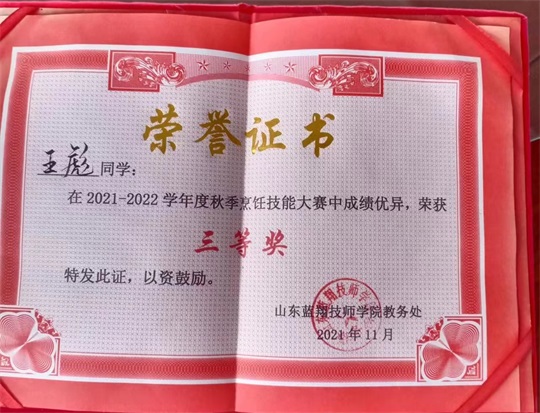 荣誉证书
王彪同学：
在 2021-2022 学年度秋季烹饪技能大赛中成绩优异，荣获
三等奖
特发此证，以资鼓励。
山东蓝翔技师学院教务处
2021 年 11 月